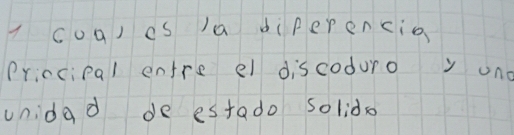 1 cual es la diferencia
Principal entre el discoduro y una
unidad de estado solido